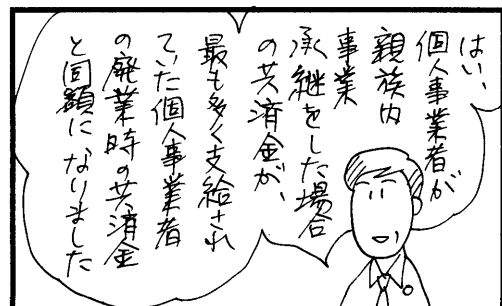 はい、
個人事業者が
親族内
事業
承継をした場合
の共済金が、
最も多く支給され
ていた個人事業者
の廃業時の共済金
と同額になりました